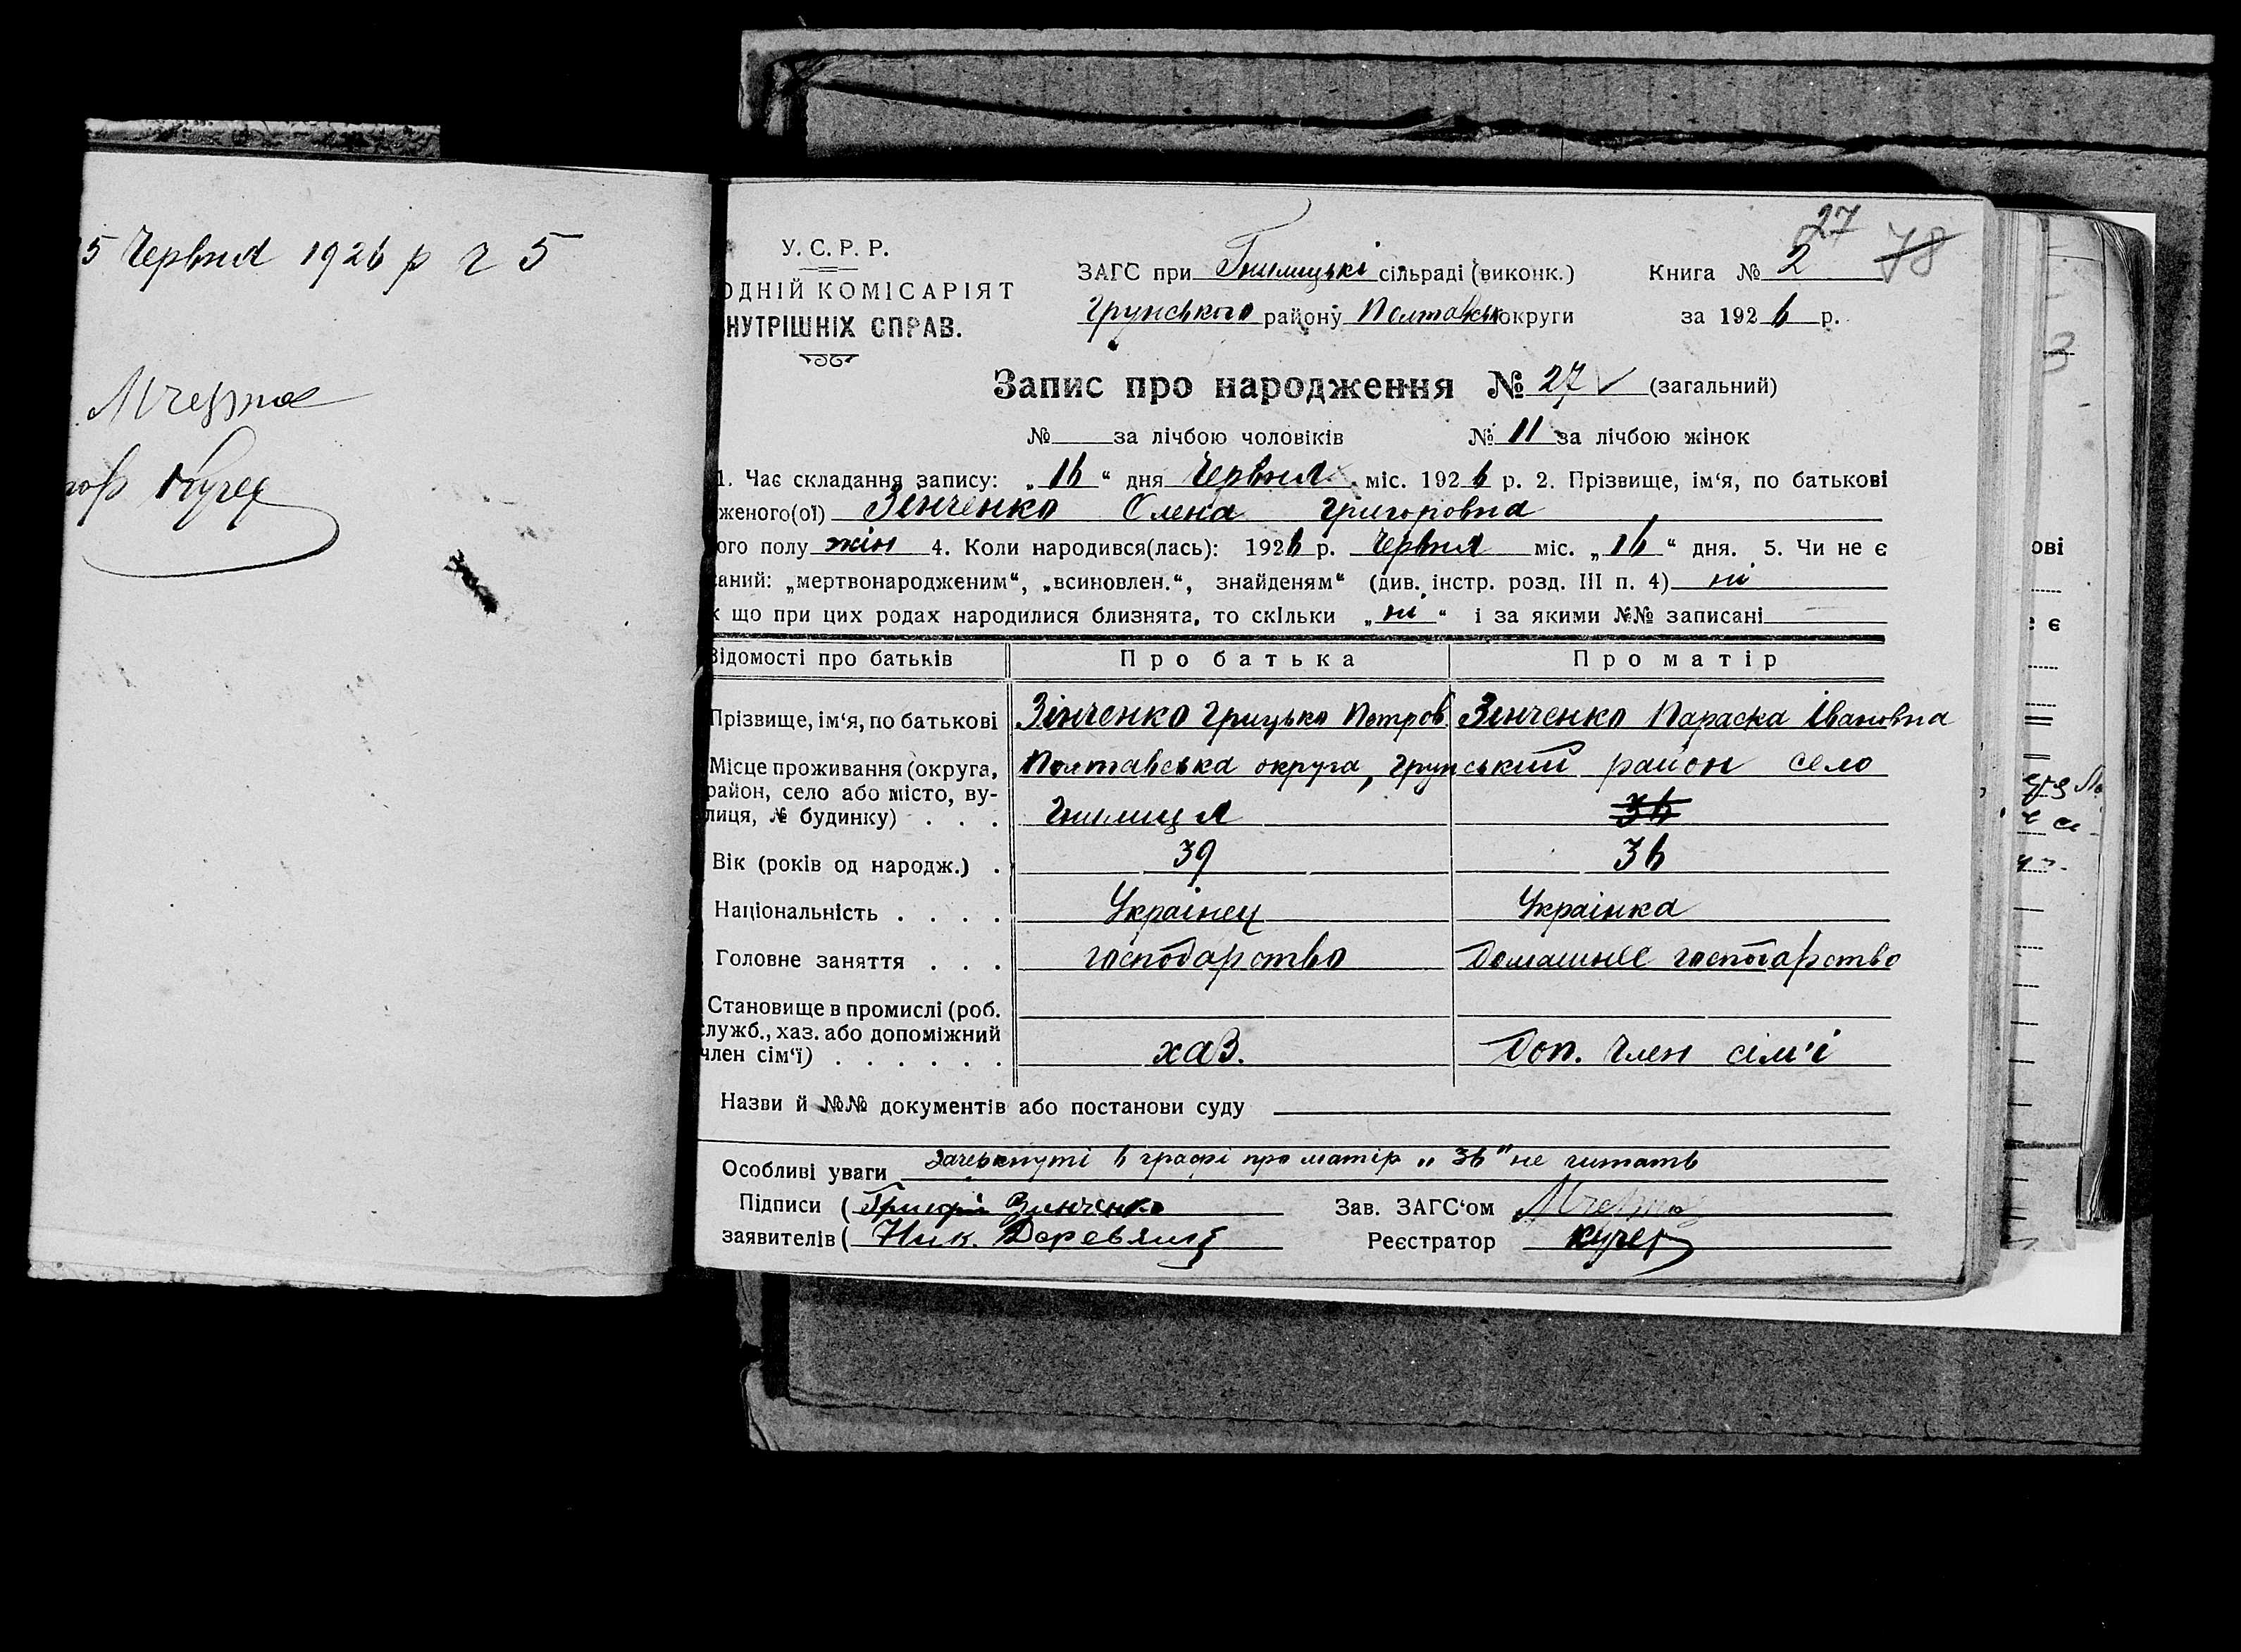 5 Червня 1926 р ч 5
Кучер
27
78
У. С. Р. Р.
ОДНІЙ КОМІСАРІЯТ
НУТРІШНІХ СПРАВ.
ЗАГС при Гнилицькі сільраді (виконк.)
Грунського району Полтавськ округи
Книга № 2
за 1926 р.
Запис про народження № 27 (загальний)
№ за лічбою чоловіків № 11 за лічбою жінок
1. Час складання запису: „16“ дня Червня міс. 1926 р. 2. Прізвище, ім‘я, по батькові
женого(ої) Зінченко Олена Григоровна
ого полу жін 4. Коли народився(лась): 1926 р. Червня міс. „16“ дня. 5. Чи не є
аний: „мертвонародженим“, „всиновлен.“, знайденям“ (див. інстр. розд. III п. 4) ні
к що при цих родах народилися близнята, то скільки „ні“ і за якими №№ записані
Відомості про батьків Про батька Про матір
Прізвище, ім‘я, по батькові Зінченко Грицько Петров. Зінченко Параска Івановна
Місце проживання (округа, район, село або місто, вулиця, № будинку) . . . Полтавська округа, Грунський район село
Гнилиця 36
Вік (років од народж.) . 39 36
Національність . . . . Українец Українка
Головне заняття . . . господарство Домашнее господарство
Становище в промислі (роб.
служб., хаз. або допоміжний
член сім‘ї) . . . . . . хаз. Доп. член сім'і
Назви й №№ документів або постанови суду
Особливі уваги Зачеркнуті в графі про матір „36" не читать
Підписи ( Григорій Зинченко Зав. ЗАГС‘ом
заявителів ( Ник. Реєстратор Кучер
ові
є